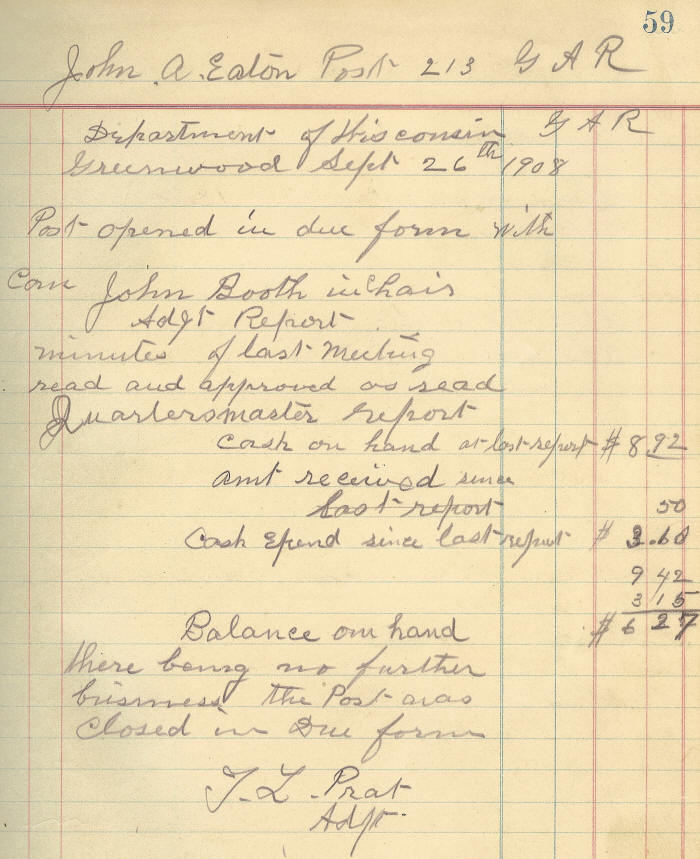 59
John A. Eaton Post 213 G A R
Department of Wisconsin G A R
Greenwood Sept 26th 1908
Post opened in due form with
Com John Booth in Chair
Adjt Report
minutes of last Meeting
read and approved as read
Quartersmaster report
Cash on hand at last report $ 8.92
amt received since
last report 50
Cash Epend since last report $ 3.60
9 42
3 15
Balance on hand $ 6 27
there being no further
business the Post was
Closed in Due form
T. L. Prat
Adjt.